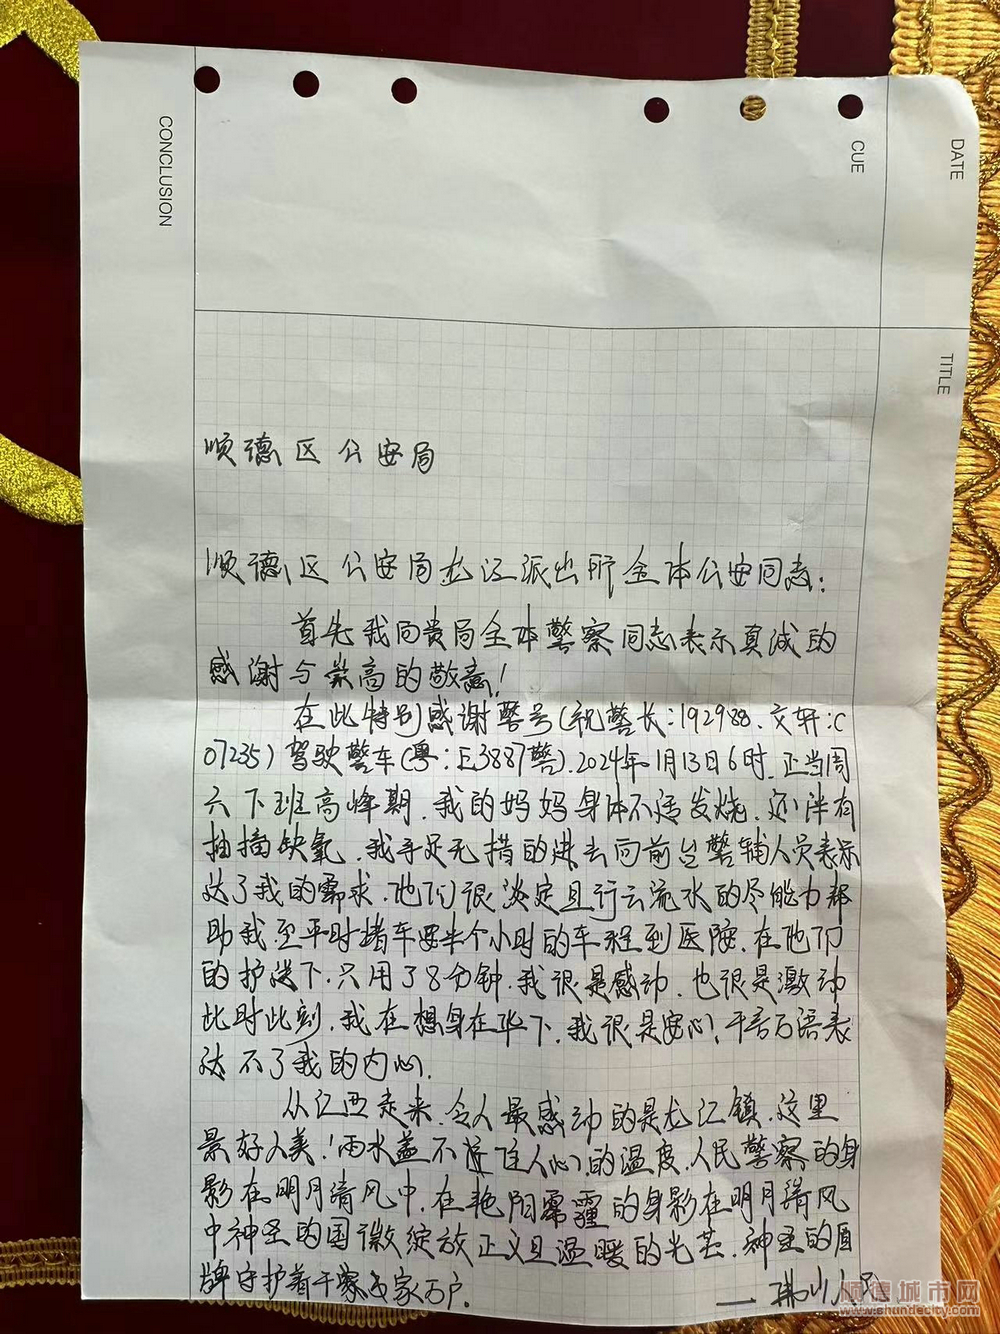 CONCLUSION
CUE
DATE
TITLE
顺德区公安局
顺德区公安局龙江派出所全体公安同志:
首先我向贵局全体警察同志表示真诚的
感谢与崇高的敬意!
在此特别感谢警号(祝警长:192988.文轩:C
07235)驾驶警车(粤:E3887警).2024年1月13日6时.正当周
六下班高峰期.我的妈妈身体不适发烧.还伴有
抽搐缺氧.我手足无措的进去向前台警辅人员表示
达了我的需求.他们很淡定且行云流水的尽能力帮
助我至平时堵车要半个小时的车程到医院.在他们
的护送下.只用了8分钟.我很是感动.也很是激动
此时此刻.我在想身在华下.我很是安心.千言万语表
达不了我的内心.
从江西走来.令人最感动的是龙江镇.这里
景好人美!雨水盖不住人心的温度.人民警察的身
影在明月清风中.在艳阳雾霾的身影在明月清风
中神圣的国徽绽放正义且温暖的光芒.神圣的盾
牌守护着千家万户.
—佛山人民
顺德城市网
www.shundecity.com